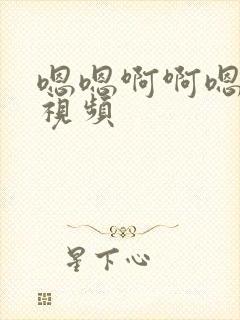 嗯嗯啊啊嗯
視頻
星下心